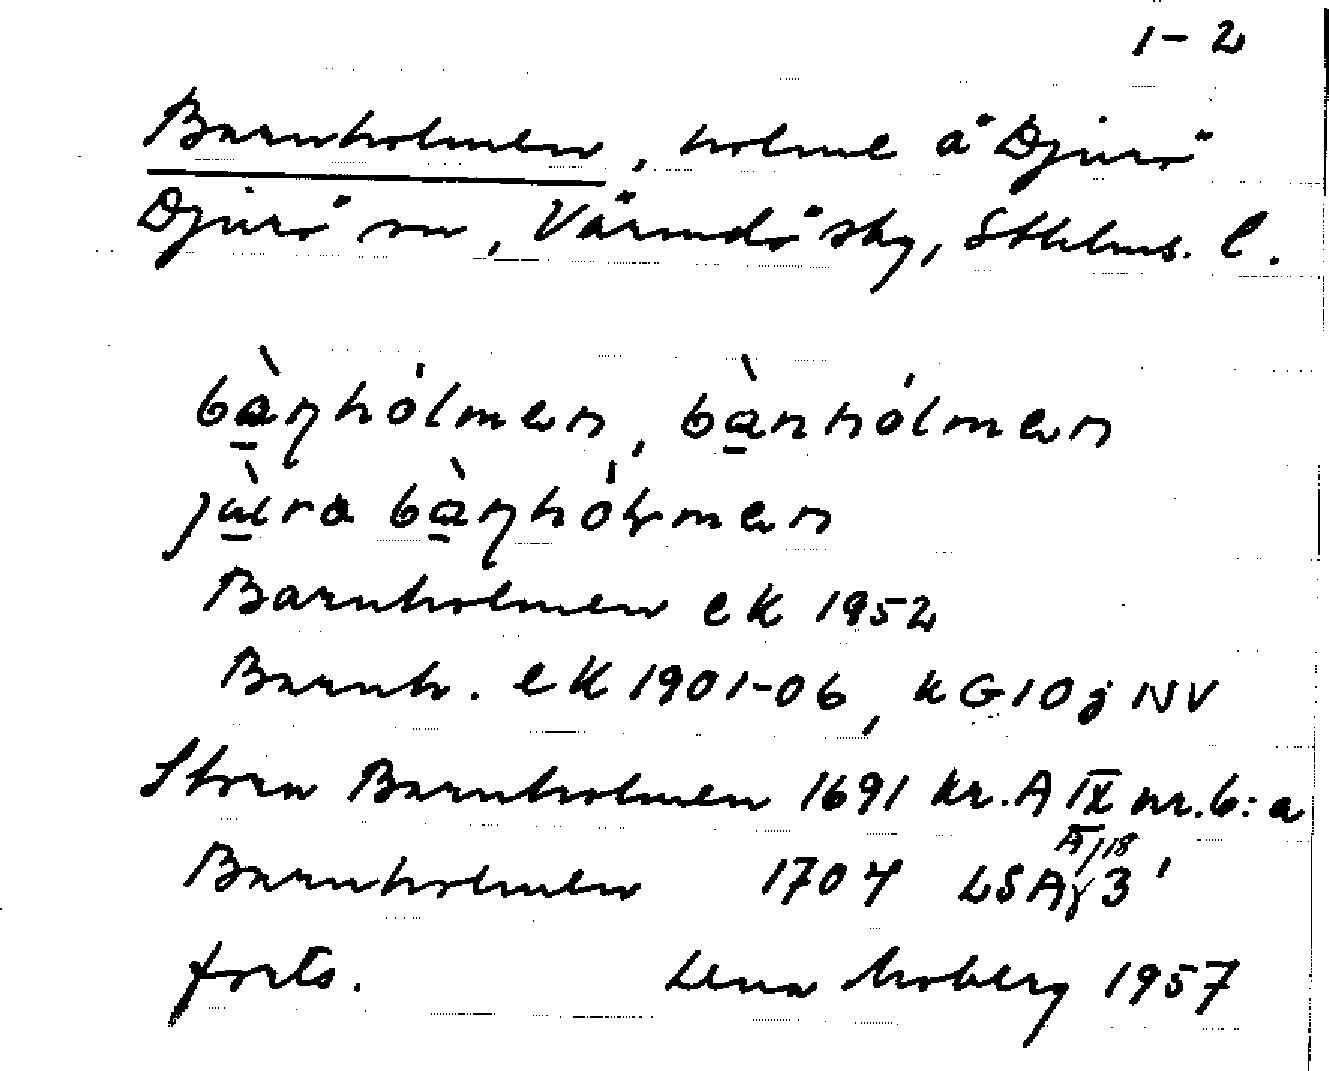 1-2
Barnholmen, holme å Djurö
Djurö sn, Värmdö sky, Sthlms. l.
bàṇhólmen, bànhólmen
Barnholmen eK 1952
Barnh. eK 1901-06, kG10j NV
Stora Barnholmen 1691 Kr.A IX nr.6:a
Barnholmen 1704 LSA
forts. Lena Moberg 1957